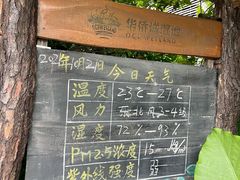 华侨城湿地
OCT WETLAND
今日天气
温度 23-27℃
风力 东北风3-4级
湿度 72%-93%
PM2.5浓度 15
紫外线强度